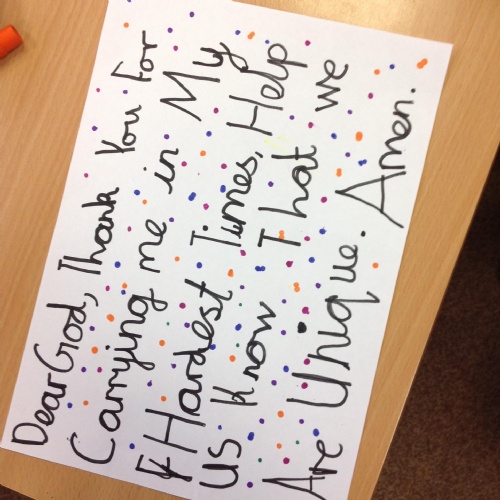 Dear God, Thank You for
Carrying me in My
Hardest Times, Help
Us know That we
Are Unique. Amen.